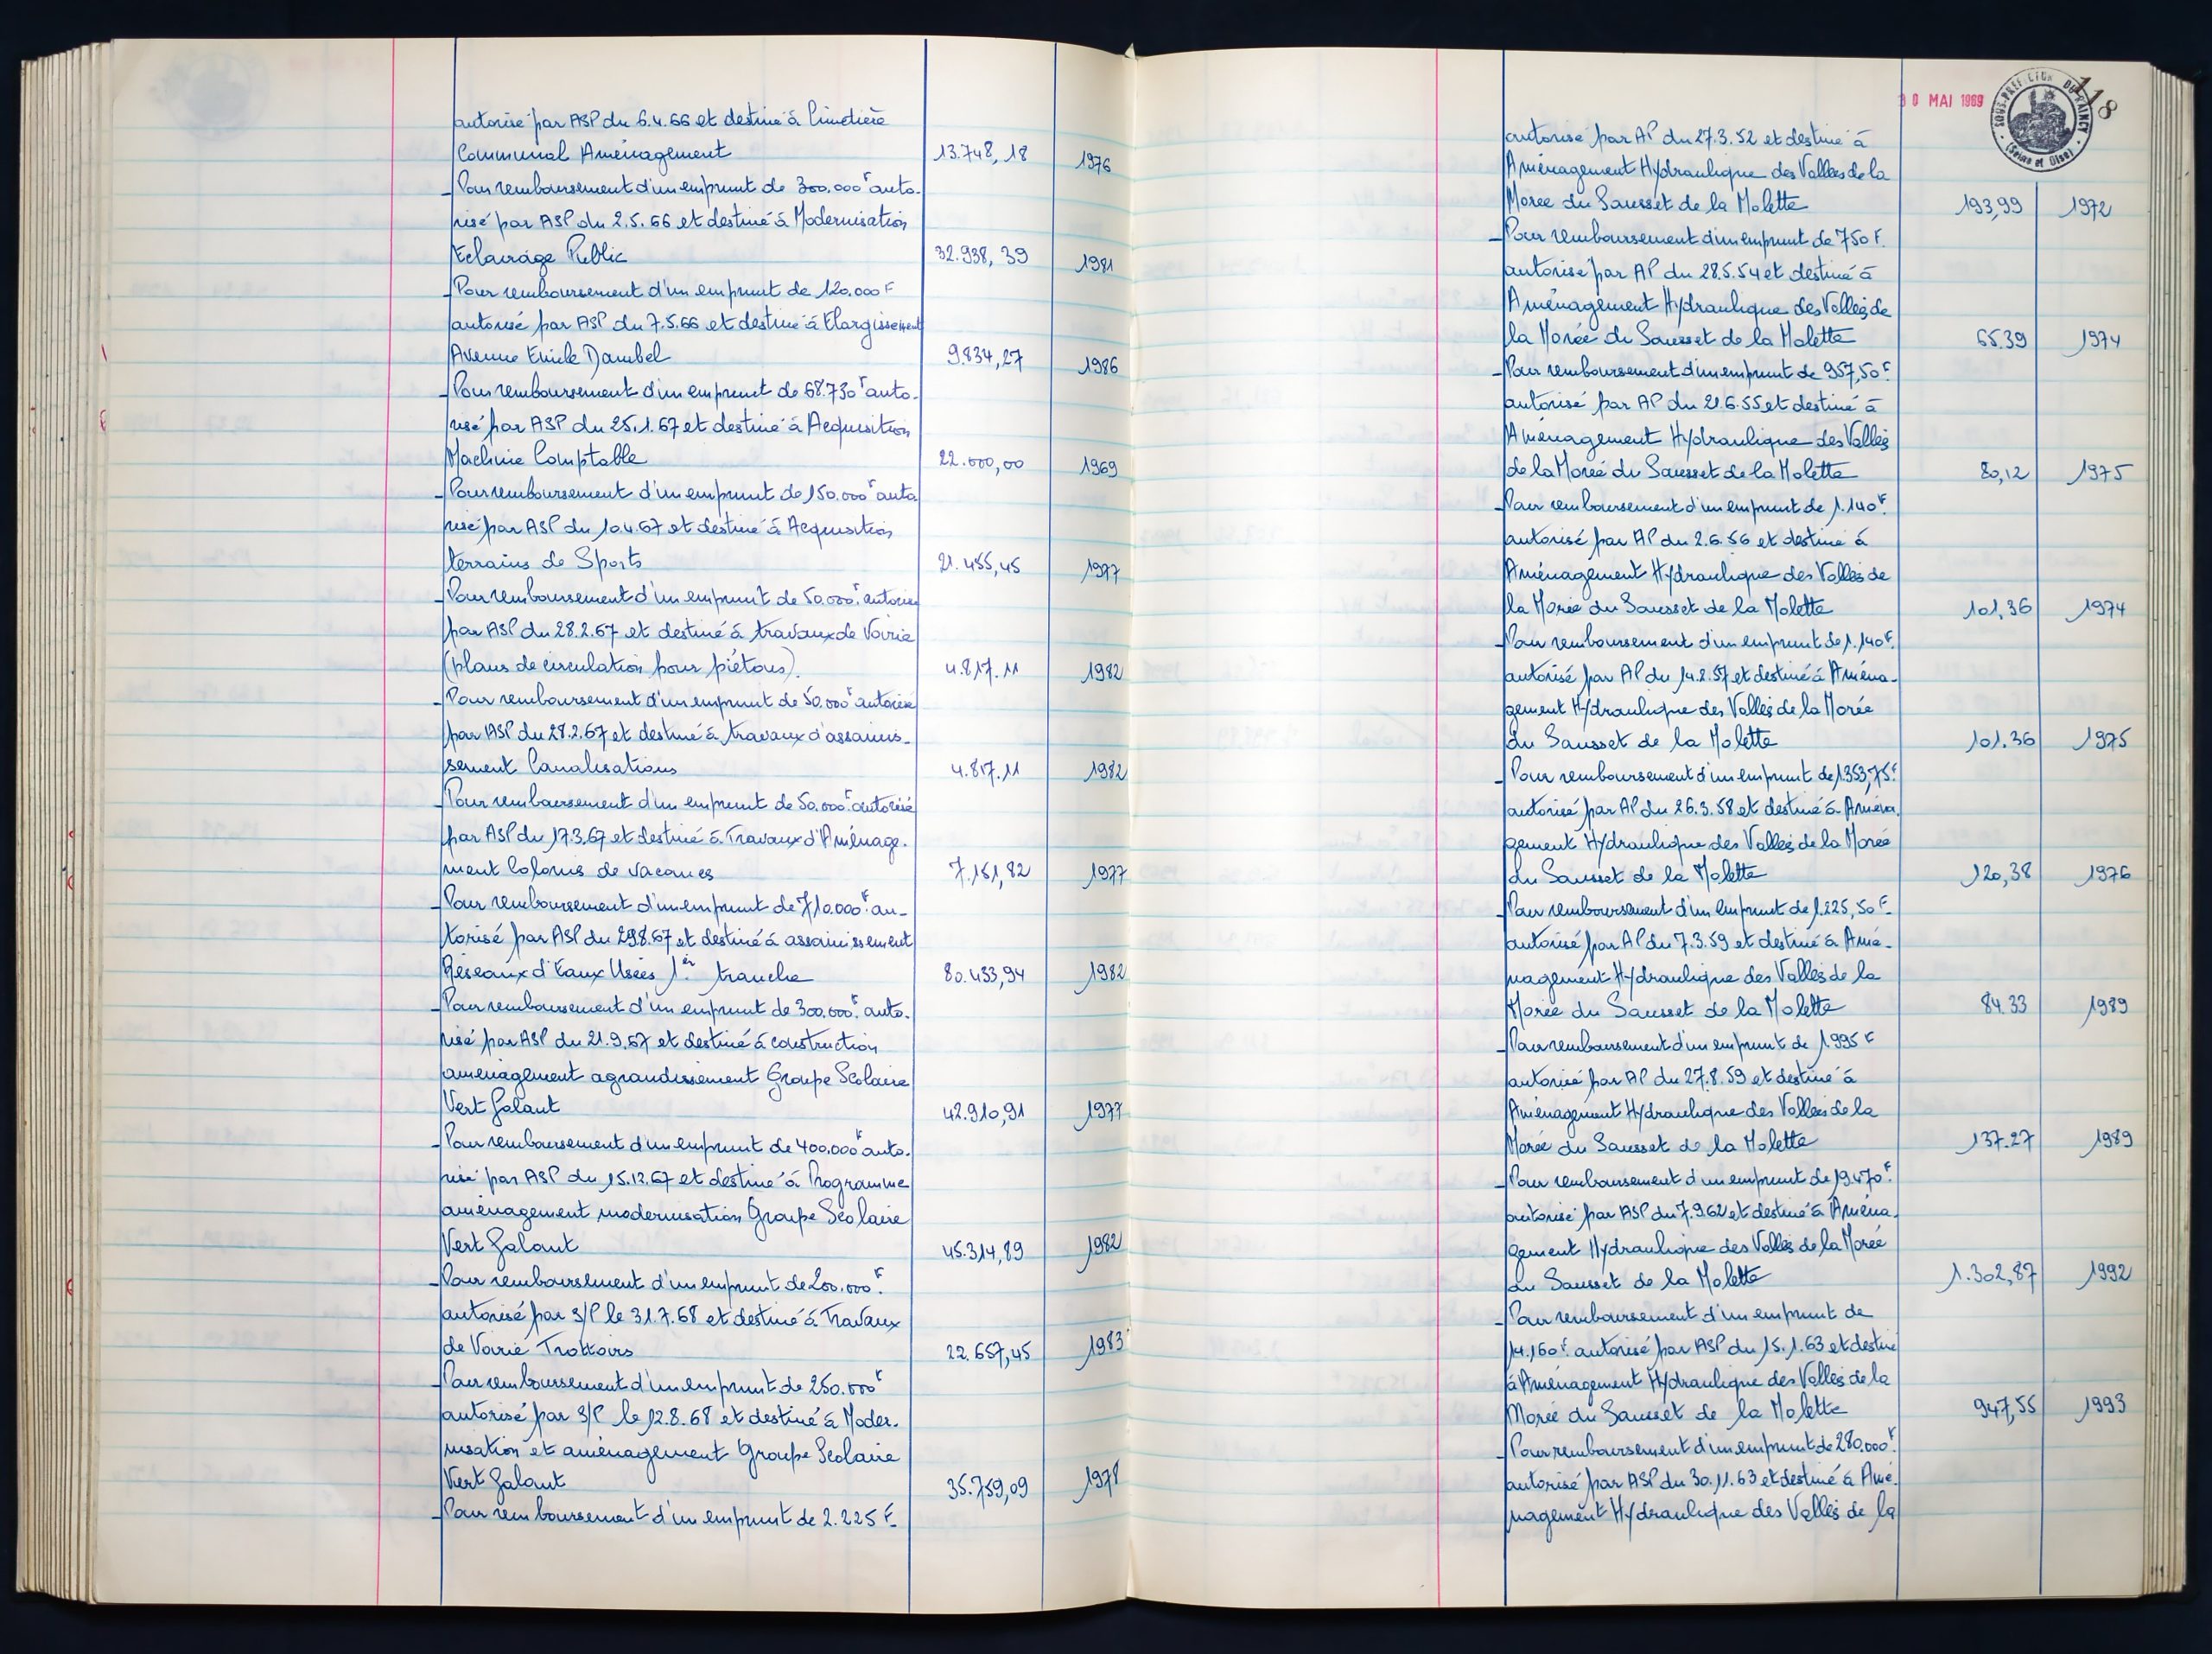 autorisé par ASP du 6.4.66 et destiné à Cimetière
Communal Aménagement 13.748,18 1976
_Pour remboursement d'un emprunt de 300.000F auto-
risé par ASP du 2.5.66 et destiné à Modernisation
Eclairage Public 32.938,39 1981
_Pour remboursement d'un emprunt de 120.000F
autorisé par ASP du 7.5.66 et destiné à Elargissement
Avenue Emile Dambel 9.834,27 1986
_Pour remboursement d'un emprunt de 68.730F auto-
risé par ASP du 25.1.67 et destiné à Acquisition
Machine Comptable 22.000,00 1969
_Pour remboursement d'un emprunt de 150.000F auto
risé par ASP du 10.4.67 et destiné à Acquisition
terrains de Sports 21.455,45 1977
_Pour remboursement d'un emprunt de 50.000F. autorisé
par ASP du 28.2.67 et destiné à travaux de Voirie
(plans de circulation pour piétons). 4.817.11 1982
_Pour remboursement d'un emprunt de 50.000F autorisé
par ASP du 28.2.67 et destiné à travaux d'assainis-
sement Canalisations 4.817.11 1982
_Pour remboursement d'un emprunt de 50.000F. autorisé
par ASP du 17.3.67 et destiné à Travaux d'Aménage-
ment Colonie de vacances 7.151,82 1977
_Pour remboursement d'un emprunt de 710.000F. au-
torisé par ASP du 29.8.67 et destiné à assainissement
Réseaux d'Eaux Usées 1èr tranche 80.433,94 1982
_Pour remboursement d'un emprunt de 300.000F. auto-
risé par ASP du 21.9.67 et destiné à construction
aménagement agrandissement Groupe Scolaire
Vert Galant 42.910,91 1977
_Pour remboursement d'un emprunt de 400.000F auto-
risé par ASP du 15.12.67 et destiné à Programme
aménagement modernisation Groupe Scolaire
Vert Galant 45.314,89 1982
_Pour remboursement d'un emprunt de 200.000F.
autorisé par S/P le 31.7.68 et destiné à Travaux
de Voirie Trottoirs 22.657,45 1983
_Pour remboursement d'un emprunt de 250.000F
autorisé par S/P le 12.8.68 et destiné à Moder-
nisation et aménagement Groupe Scolaire
Vert Galant 35.759,09 1978
_Pour remboursement d'un emprunt de 2.225 F.
30 MAI 1969
SOUS-PRÉFECTURE DU RAINCY
(Seine et Oise)
118
autorisé par AP du 27.3.52 et destiné à
Aménagement Hydraulique des Vallées de la
Morée du Sausset de la Molette 193,99 1972
_Pour remboursement d'un emprunt de 750 F.
autorisé par AP du 28.5.54 et destiné à
Aménagement Hydraulique des Vallées de
la Morée du Sausset de la Molette 65.39 1974
_Pour remboursement d'un emprunt de 957,50F.
autorisé par AP du 21.6.55 et destiné à
Aménagement Hydraulique des Vallées
de la Morée du Sausset de la Molette 80,12 1975
_Pour remboursement d'un emprunt de 1.140F.
autorisé par AP du 2.6.56 et destiné à
Aménagement Hydraulique des Vallées de
la Morée du Sausset de la Molette 101,36 1974
_Pour remboursement d'un emprunt de 1.140F.
autorisé par AP du 14.2.57 et destiné à Aména-
gement Hydraulique des Vallées de la Morée
du Sausset de la Molette 101.36 1975
_Pour remboursement d'un emprunt de 1.353,75F.
autorisé par AP du 26.3.58 et destiné à Aména-
gement Hydraulique des Vallées de la Morée
du Sausset de la Molette 120,38 1976
_Pour remboursement d'un emprunt de 1.225,50 F.
autorisé par AP du 7.3.59 et destiné à Amé-
nagement Hydraulique des Vallées de la
Morée du Sausset de la Molette 84.33 1989
_Pour remboursement d'un emprunt de 1.995 F
autorisé par AP du 27.8.59 et destiné à
Aménagement Hydraulique des Vallées de la
Morée du Sausset de la Molette 137.27 1989
_Pour remboursement d'un emprunt de 19.470F.
autorisé par ASP du 7.9.62 et destiné à Aména-
gement Hydraulique des Vallées de la Morée
du Sausset de la Molette 1.302,87 1992
_Pour remboursement d'un emprunt de
14.160F. autorisé par ASP du 15.1.63 et destiné
à Aménagement Hydraulique des Vallées de la
Morée du Sausset de la Molette 947,55 1993
_Pour remboursement d'un emprunt de 280.000F.
autorisé par ASP du 30.11.63 et destiné à Amé-
nagement Hydraulique des Vallées de la